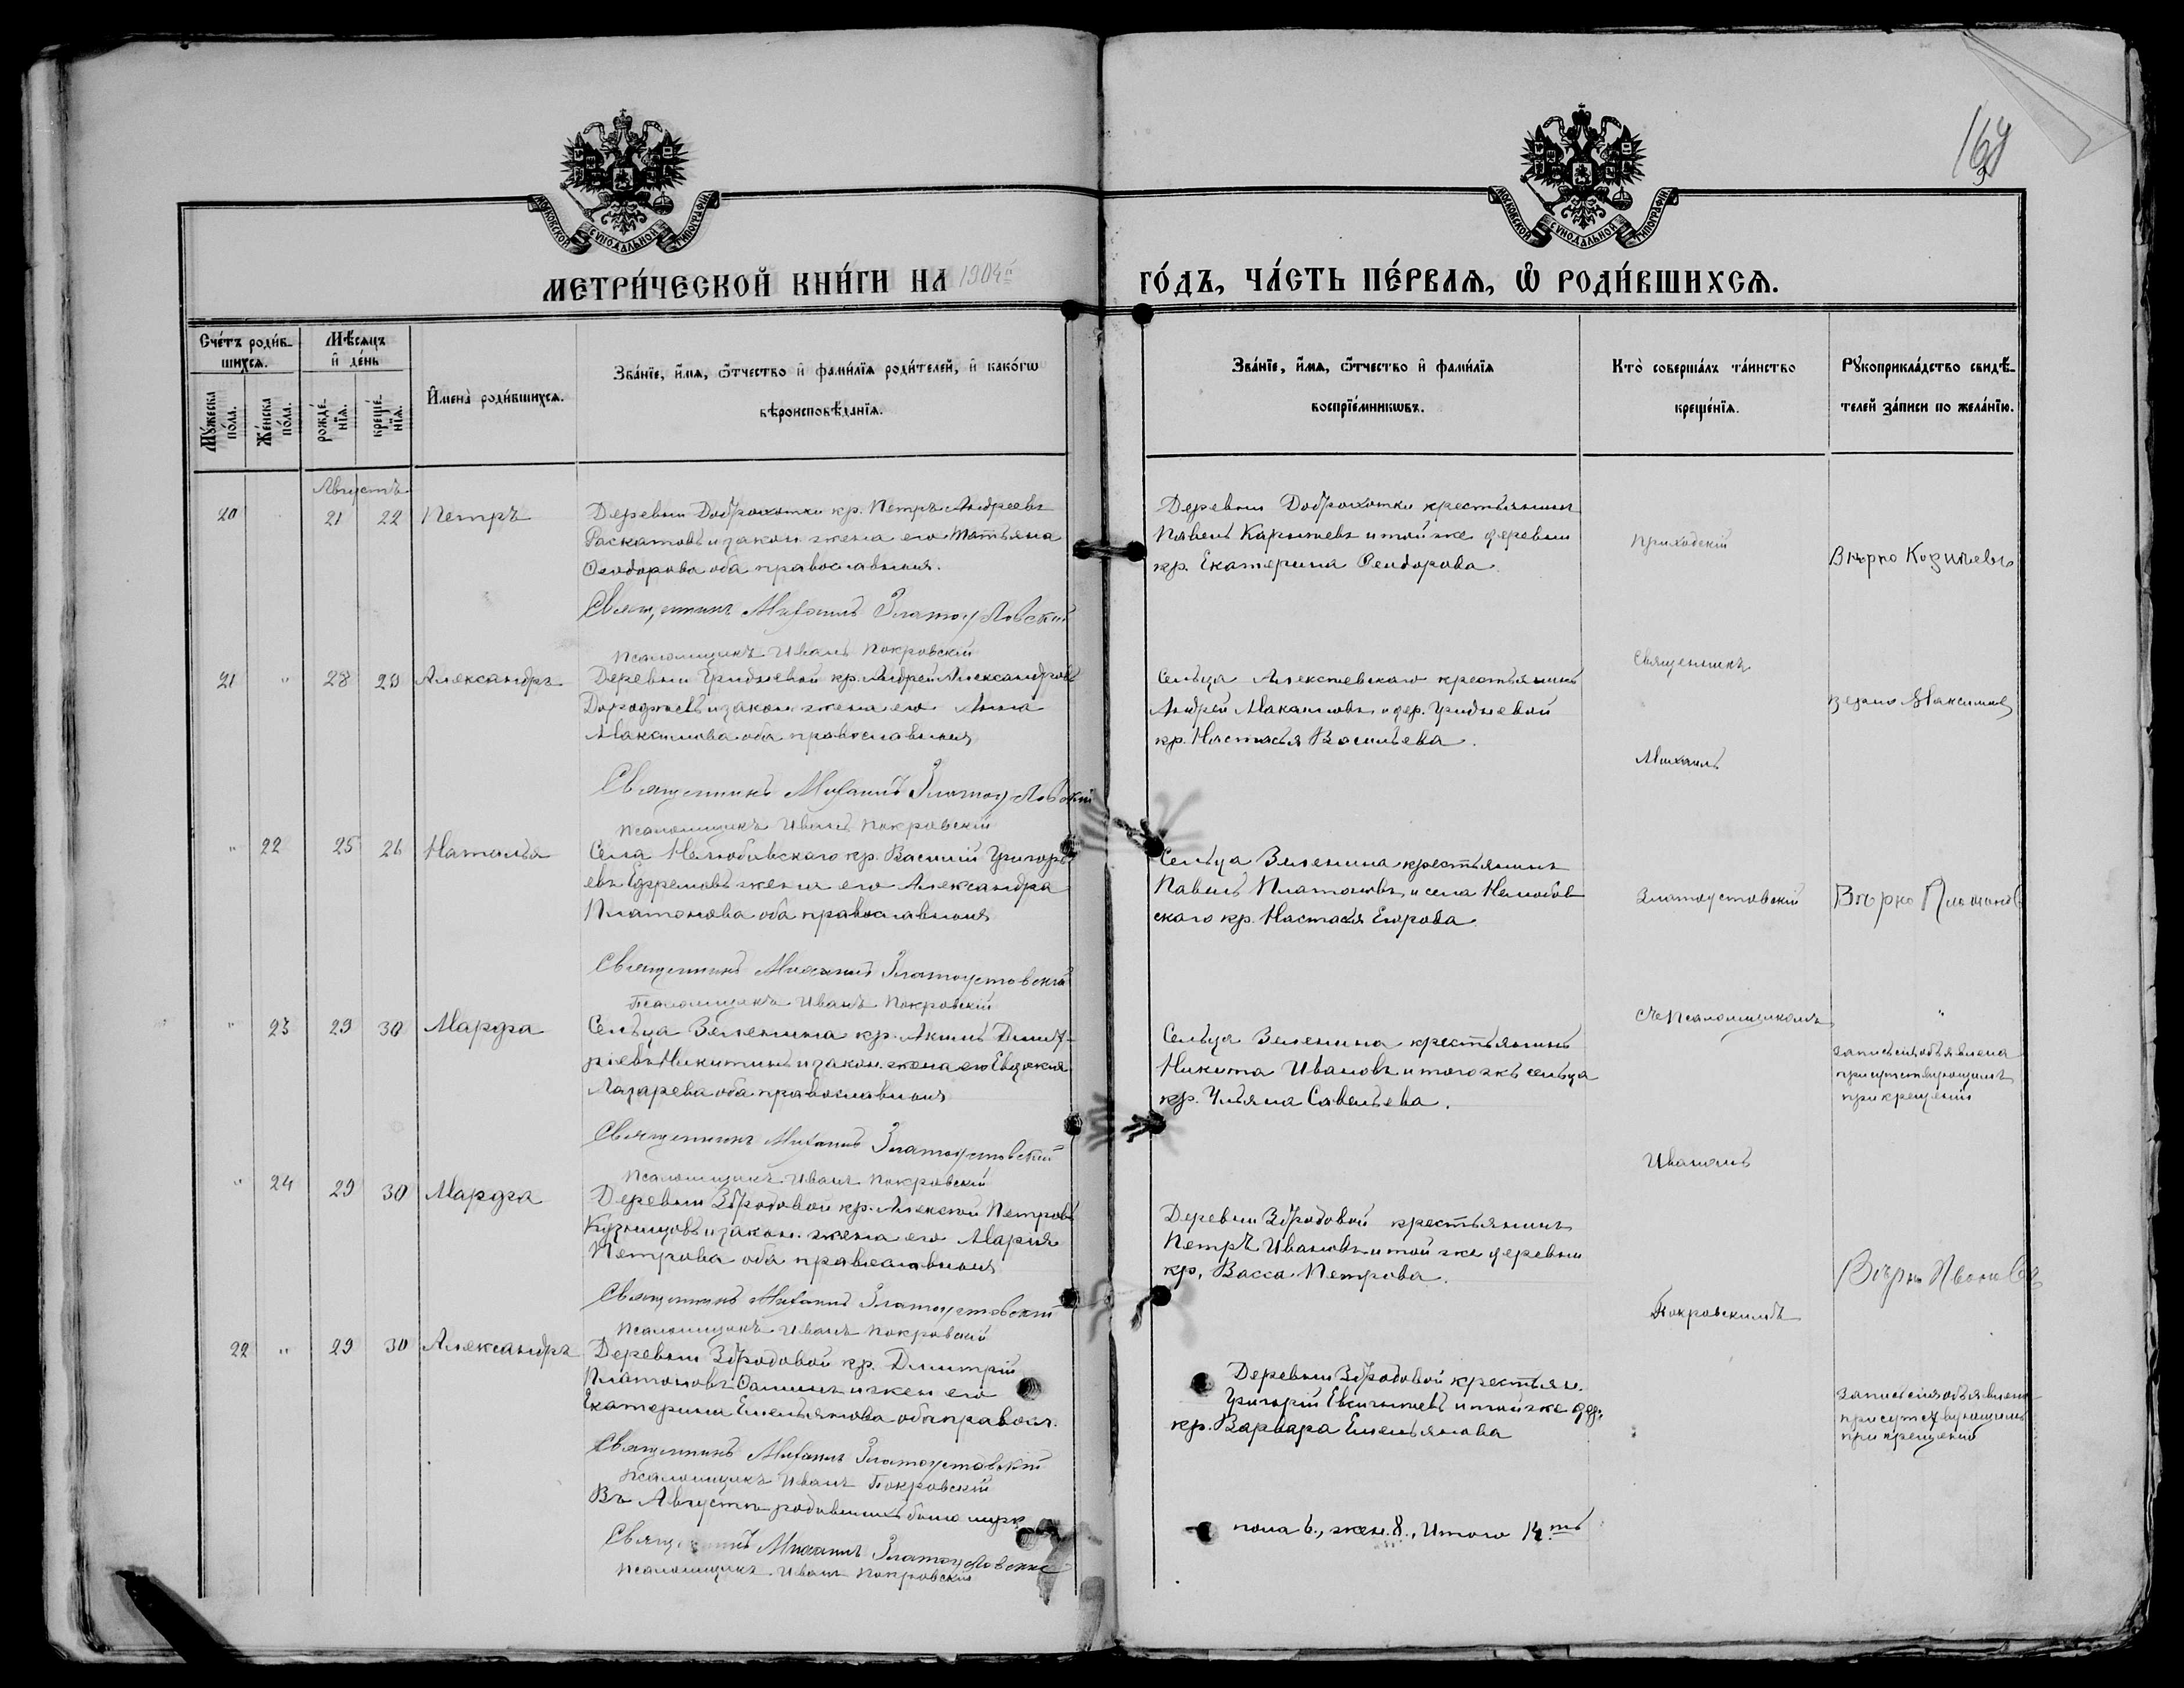 169
МОСКОВСКОЙ СѴНОДАЛЬНОЙ ТИПОГРАФІИ.
МОСКОВСКОЙ СѴНОДАЛЬНОЙ ТИПОГРАФІИ.
МЕТРИ́ЧЕСКОЙ КНИ́ГИ НА 1904й ГО́ДЪ, ЧА́СТЬ ПЕ́РВАЯ, Ѽ РОДИ́ВШИХСѦ.
Сче́тъ роди́в-
шихсѧ.
Мѣ́сѧцъ
и҆ де́нь
Мꙋ́жеска
по́ла.
Же́нска
по́ла.
рожде́-
нїѧ.
креще́-
нїѧ.
И҆мена̀ роди́вшихсѧ.
Зва́нїе, и҆́мѧ, ѻ҆́тчество и҆ фами́лїѧ роди́телей, и҆ како́гѡ
вѣроисповѣ́данїѧ.
Зва́нїе, и҆́мѧ, ѻ҆́тчество и҆ фами́лїѧ
воспрїе́мникѡвъ.
Кто̀ соверша́лъ та́инство
креще́нїѧ.
Рꙋкоприкла́дство свидѣ́-
телей за́писи по жела́нїю.
Августъ
20 21 22 Петръ
Деревни Доброхотки кр. Петръ Андреевъ
Раскатовъ и закон. жена его Татьяна
Ѳеодорова оба православныя.
Священникъ Михаилъ Златоустовскій
Псаломщикъ Иванъ Покровскій
Деревни Доброхотки крестьянинъ
Павелъ и той же деревни
кр. Екатерина Ѳеодорова.
Приходскій
Вѣрно
21 " 28 29 Александръ
Деревни Гридневой кр. Андрей Александровъ
и закон. жена его Анна
Максимова оба православныя
Священникъ Михаилъ Златоустовскій
Псаломщикъ Иванъ Покровскій
Сельца Алексѣевскаго крестьянинъ
Андрей Максимовъ и дер. Гридневой
кр. Настасья Васильева.
Священникъ
верно Максимов
Михаилъ
" 22 25 26 Наталья
Села Нелюбовскаго кр. Василій Григорь-
евъ Ефремовъ жена его Александра
Платонова оба православныя
Священникъ Михаилъ Златоустовскій
Псаломщикъ Иванъ Покровскій
Сельца Зеленина крестьянинъ
Павелъ Платоновъ и села Нелюбов-
скаго кр. Настасья Егорова.
Златоустовскій
Вѣрно Платонов
" 23 29 30 Марфа
Сельца Зеленина кр. Акимъ Димит-
ріевъ Никитинъ и закон. жена его Евдокия
Лазарева оба православныя
Священникъ Михаилъ Златоустовскій
Псаломщикъ Иванъ Покровскій
Сельца Зеленина крестьянинъ
Никита Ивановъ и тогожъ сельца
кр. Ульяна Савельева.
съ Псаломщикомъ
"
запись сія объявлена
присутствующимъ
при крещеніи
" 24 29 30 Марфа
Деревни Збродовой кр. Алексѣй Петровъ
Кузнецовъ и закон. жена его Марія
Петрова оба православныя
Священникъ Михаилъ Златоустовскій
Псаломщикъ Иванъ Покровскій
Деревни Збродовой крестьянинъ
Петръ Ивановъ и той же деревни
кр. Васса Петрова.
Иваномъ
Вѣрно Ивановъ
Покровскимъ
22 " 29 30 Александръ
Деревни Збродовой кр. Димитрій
Платоновъ и жен. его
Екатерина Емельянова оба правосл.
Священникъ Михаилъ Златоустовскій
Псаломщикъ Иванъ Покровскій
Деревни Збродовой крестьян.
Григорій и той же дер.
кр. Варвара Емельянова
запись сія объявлена
присутствующимъ
при крещеніи
Въ Августѣ родившихся было муж.
пола 6., жен. 8., Итого 14ть
Священникъ Михаилъ Златоустовскій
Псаломщикъ Иванъ Покровскій